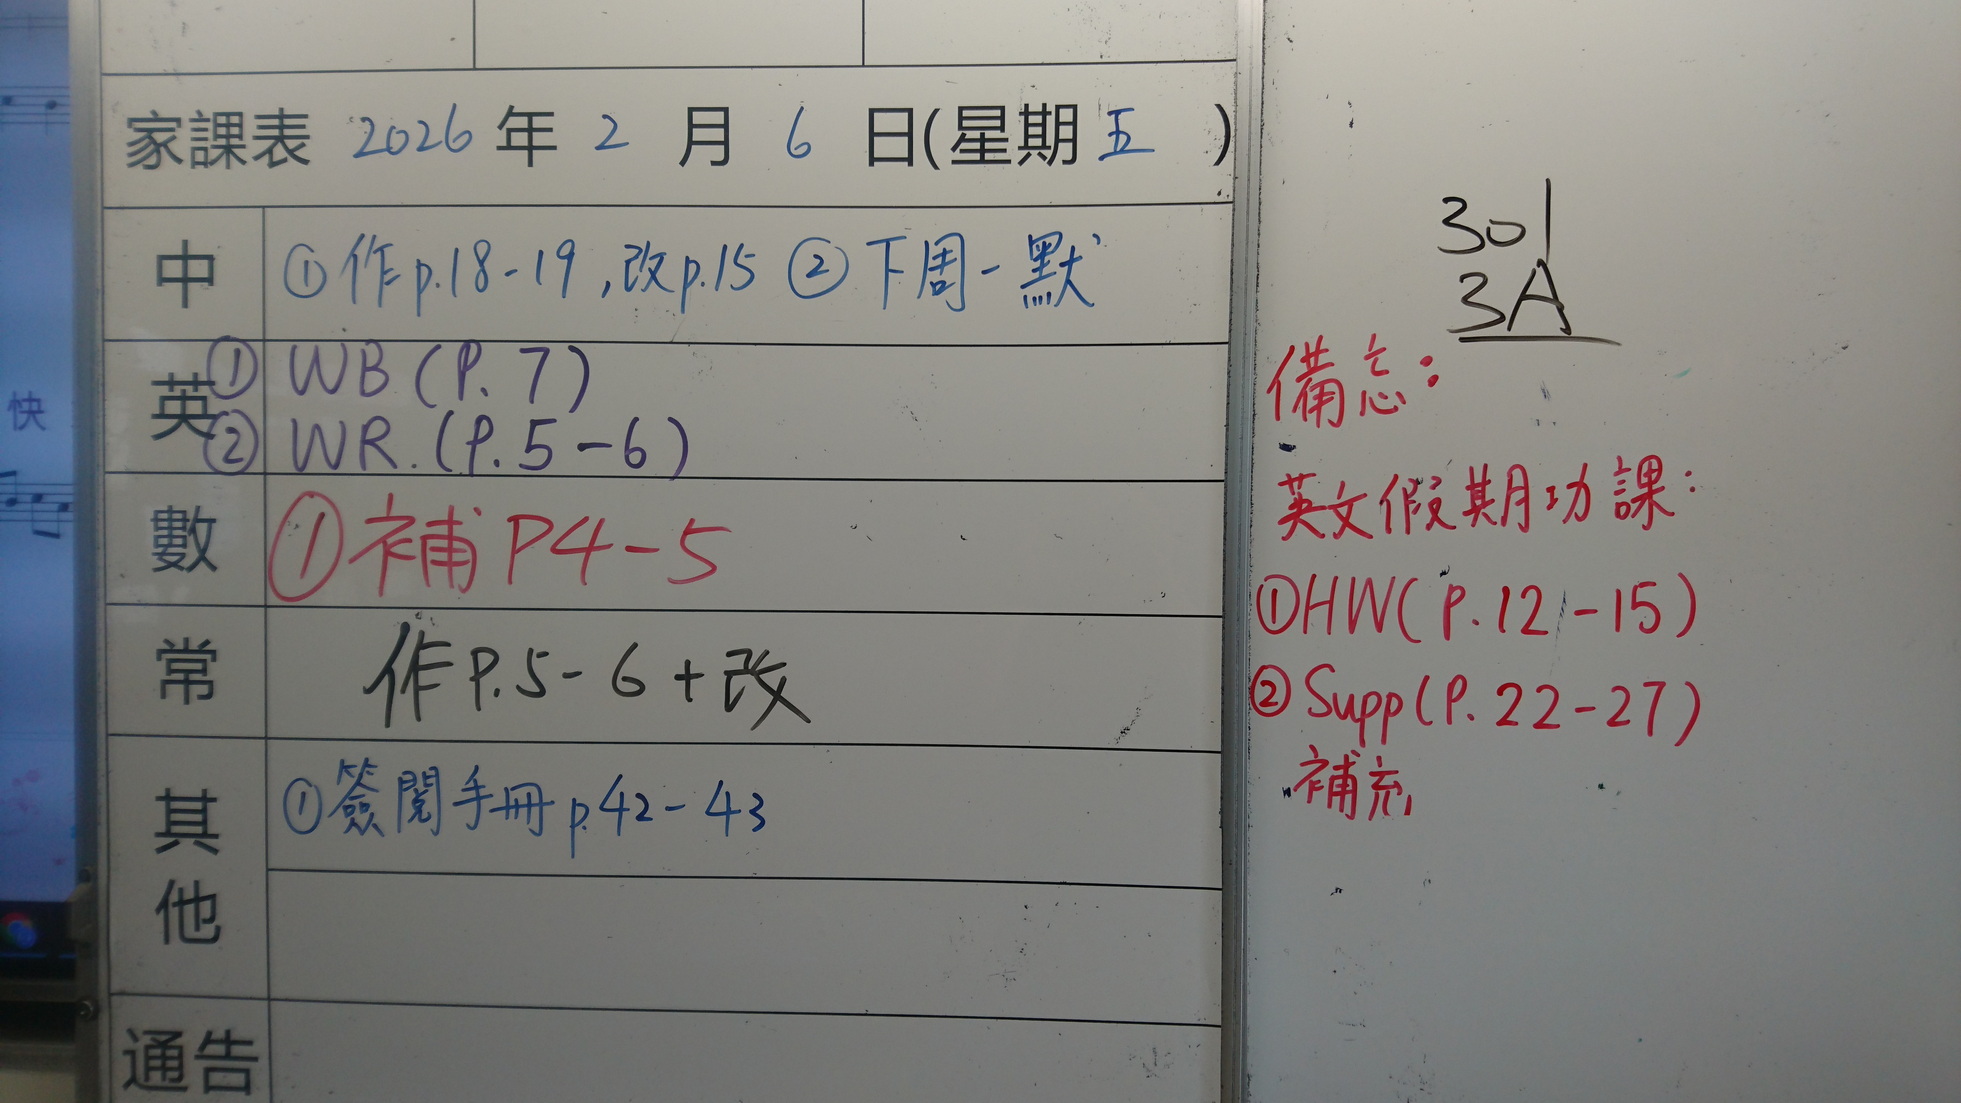 家課表 2026年2月6日(星期五)
中 ①作p.18-19,改p.15 ②下周一默
英 ① WB(P.7)
② WR.(P.5-6)
數 ①補P4-5
常 作P.5-6+改
其他 ①簽閱手冊p.42-43
通告
301
3A
備忘:
英文假期功課:
①HW(P.12-15)
②Supp(P.22-27)
補充
快